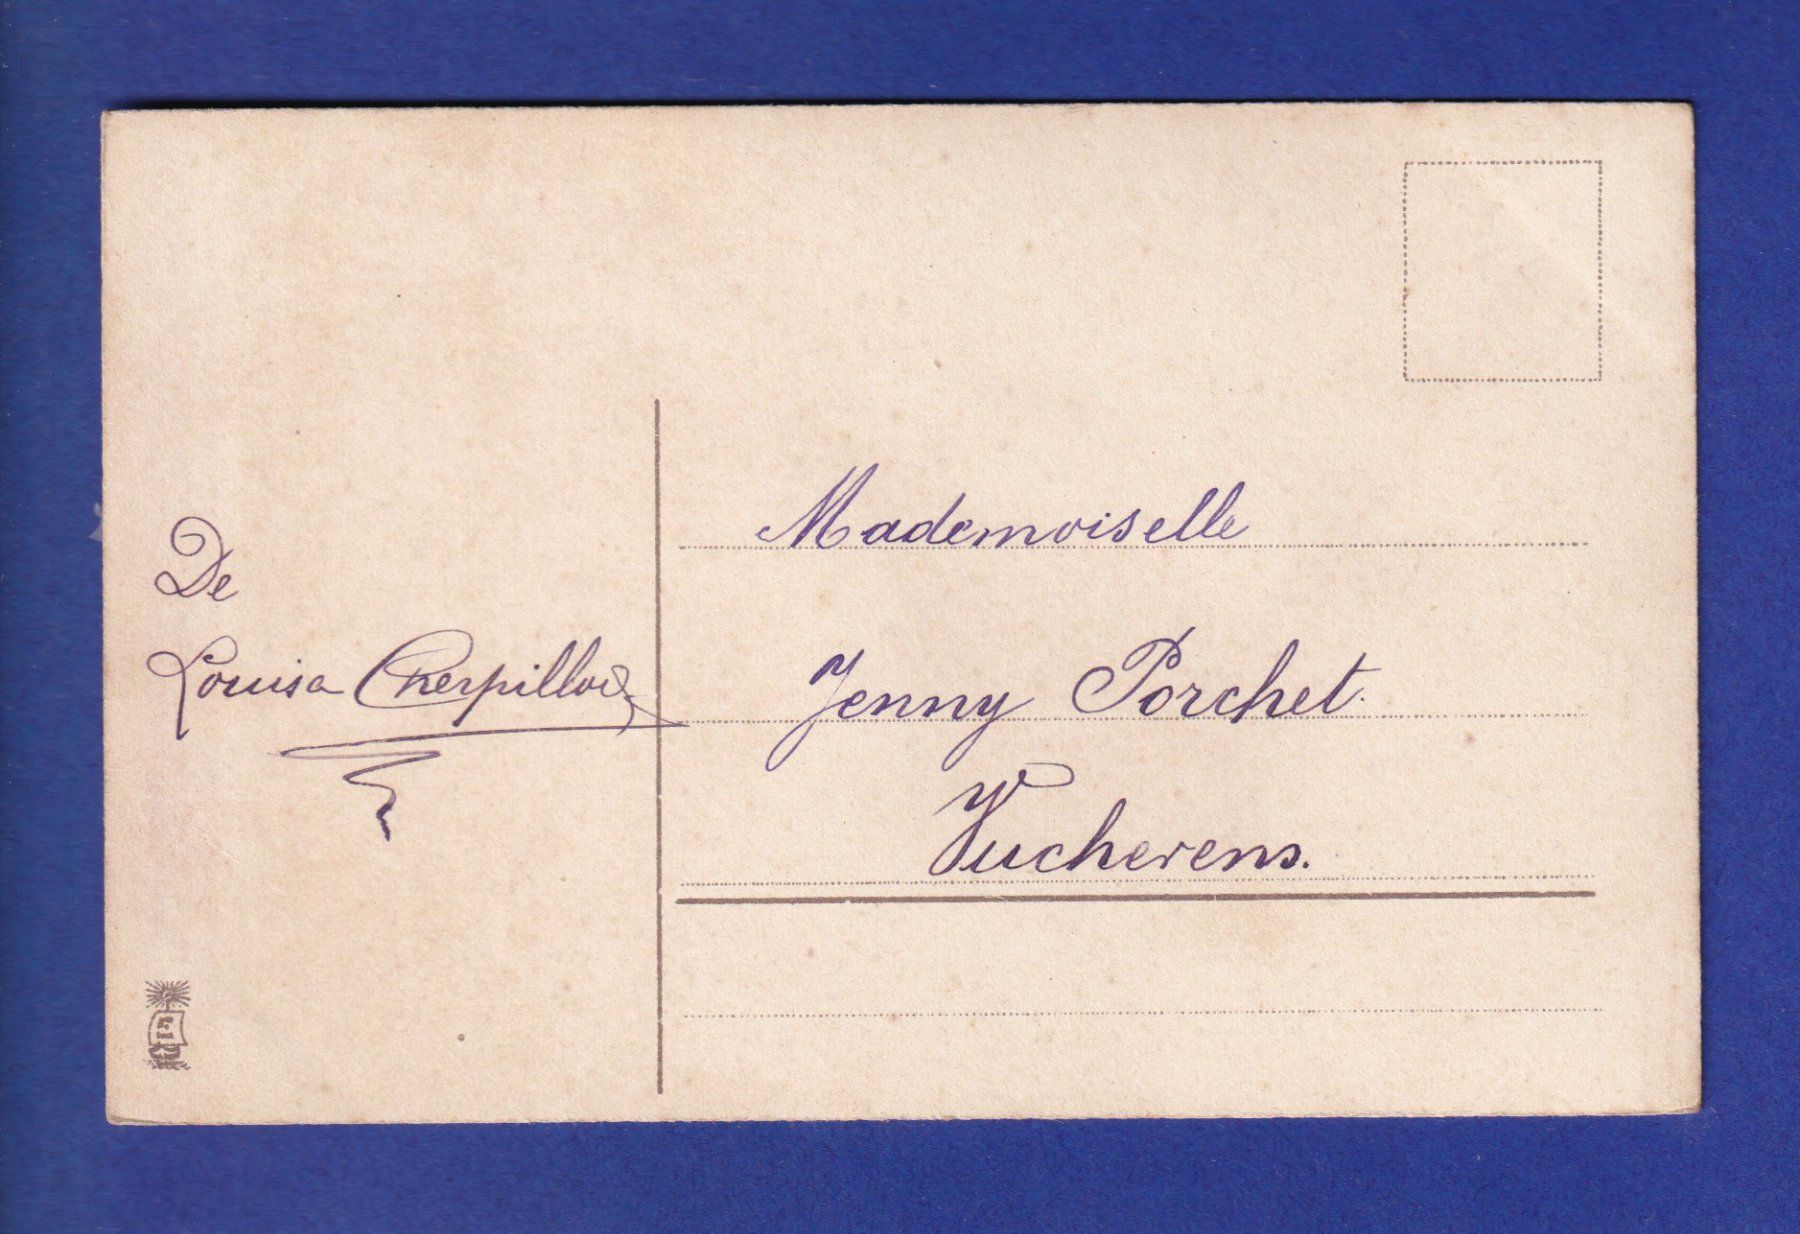 De
Louisa Cherpillod
Mademoiselle
Jenny Porchet.
Vucherens.